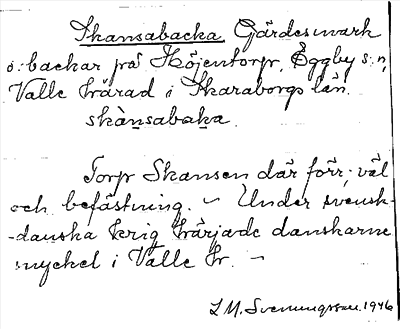 Skansabacka Gärdesmark
o. backar på Höjentorp, Eggby s:n,
Valle härad i Skaraborgs län.
skànsabaka
Torp Skansen där förr; väl
och befästning. – Under svensk-
-danska krig härjade danskarne
mycket i Valle hr. –
L.M. Svenungsson. 1946